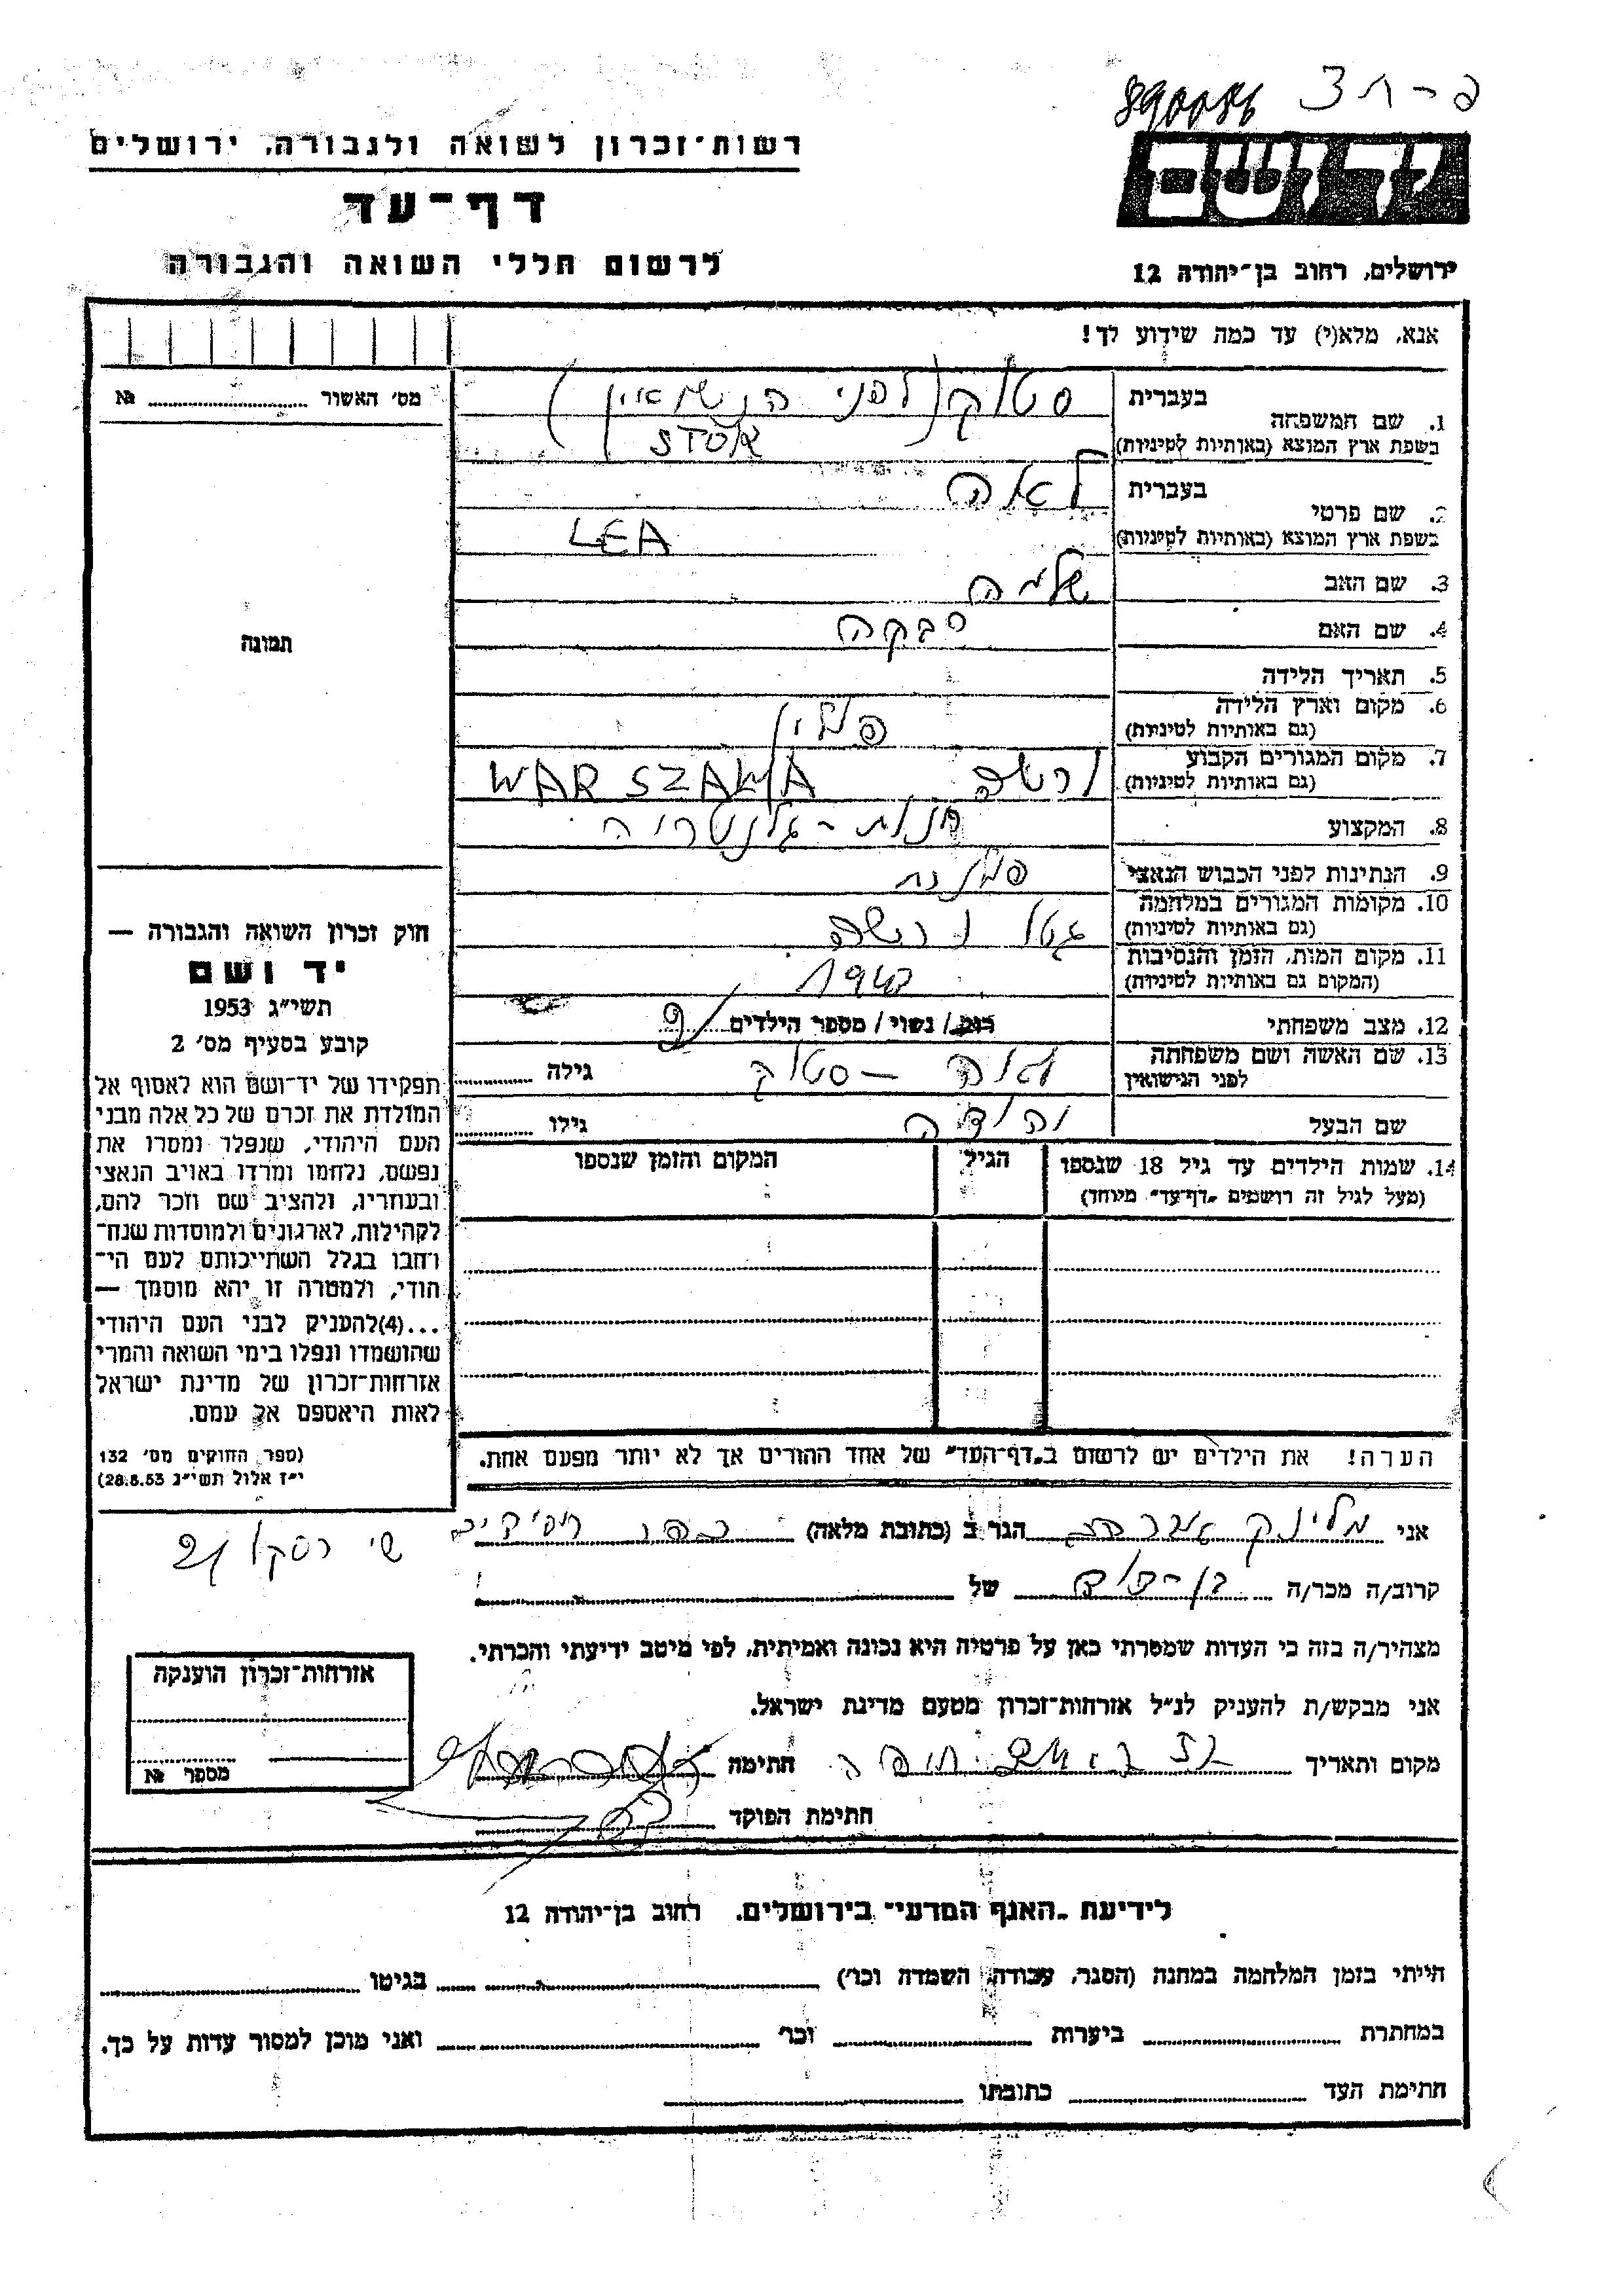 פ-ת 3 890086
רשות־זכרון לשואה ולגבורה, ירושלים
דף־עד
לרשום חללי השואה והגבורה
יד ושם
ירושלים, רחוב בן־יהודה 12
אנא, מלא(י) עד כמה שידוע לך!
מס' האשור № 
1. שם המשפחה בעברית סטוק (לפני הנשואין)
בשפת ארץ המוצא (באותיות לטיניות) STOK
2. שם פרטי בעברית לאה
בשפת ארץ המוצא (באותיות לטיניות) LEA
3. שם האב שלמה
4. שם האם רבקה
תמונה
5. תאריך הלידה
6. מקום וארץ הלידה פולין
(גם באותיות לטיניות)
7. מקום המגורים הקבוע ורשה WARSZAWA
(גם באותיות לטיניות)
8. המקצוע חנות - גלנטריה
9. הנתינות לפני הכבוש הנאצי פולנית
10. מקומות המגורים במלחמה גטו ורשה
(גם באותיות לטיניות)
11. מקום המות, הזמן והנסיבות
(המקום גם באותיות לטיניות)
12. מצב משפחתי רווק / נשוי / מספר הילדים
13. שם האשה ושם משפחתה לאה - סטוק גילה
לפני הנישואין
שם הבעל יהודה גילו
14. שמות הילדים עד גיל 18 שנספו הגיל המקום והזמן שנספו
(מעל לגיל זה רושמים "דף־עד" מיוחד)
הערה! את הילדים יש לרשום ב"דף־העד" של אחד ההורים אך לא יותר מפעם אחת.
חוק זכרון השואה והגבורה —
יד ושם
תשי"ג 1953
קובע בסעיף מס' 2
תפקידו של יד־ושם הוא לאסוף אל
המולדת את זכרם של כל אלה מבני
העם היהודי, שנפלו ומסרו את
נפשם, נלחמו ומרדו באויב הנאצי
ובעוזריו, ולהציב שם וזכר להם,
לקהילות, לארגונים ולמוסדות שנח־
רחבו בגלל השתייכותם לעם הי־
הודי, ולמטרה זו יהא מוסמך —
...(4)להעניק לבני העם היהודי
שהושמדו ונפלו בימי השואה והמרי
אזרחות־זכרון של מדינת ישראל
לאות היאספם אל עמם.
(ספר החוקים מס' 132
י"ז אלול תשי"ג 28.8.53)
אני הגר ב (כתובת מלאה)
קרוב/ה מכר/ה בן-דוד של
מצהיר/ה בזה כי העדות שמסרתי כאן על פרטיה היא נכונה ואמיתית, לפי מיטב ידיעתי והכרתי.
אני מבקש/ת להעניק לנ"ל אזרחות־זכרון מטעם מדינת ישראל.
מקום ותאריך חתימה
חתימת הפוקד
אזרחות־זכרון הוענקה
מספר №
לידיעת "האגף המדעי" בירושלים. רחוב בן־יהודה 12
הייתי בזמן המלחמה במחנה (הסגר, עבודה, השמדה וכו') בגיטו
במחתרת ביערות וכו' ואני מוכן למסור עדות על כך.
חתימת העד כתובתו